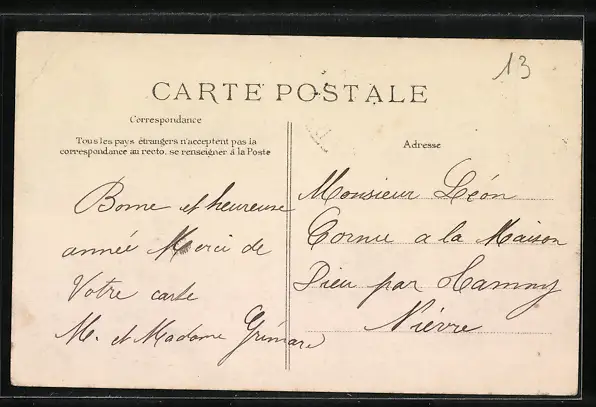 13
CARTE POSTALE
Correspondance
Tous les pays étrangers n'acceptent pas la
correspondance au recto. se renseigner à la Poste
Adresse
Bonne et heureuse
année Merci de
Votre carte
M. et Madame Grimare
Monsieur Léon
Cornu a la Maison
Dieu par
Nièvre